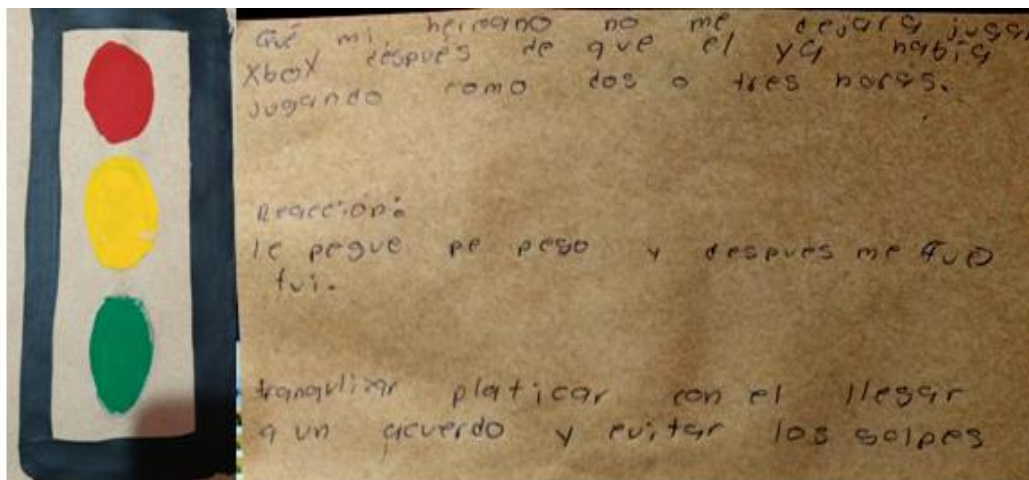 Que mi hermano no me dejara jugar
Xbox después de que el ya había
jugando como dos o tres horas.
Reaccion:
le pegue me pego y despues me
fui.
tranqulizar platicar con el llegar
a un acuerdo y evitar los golpes